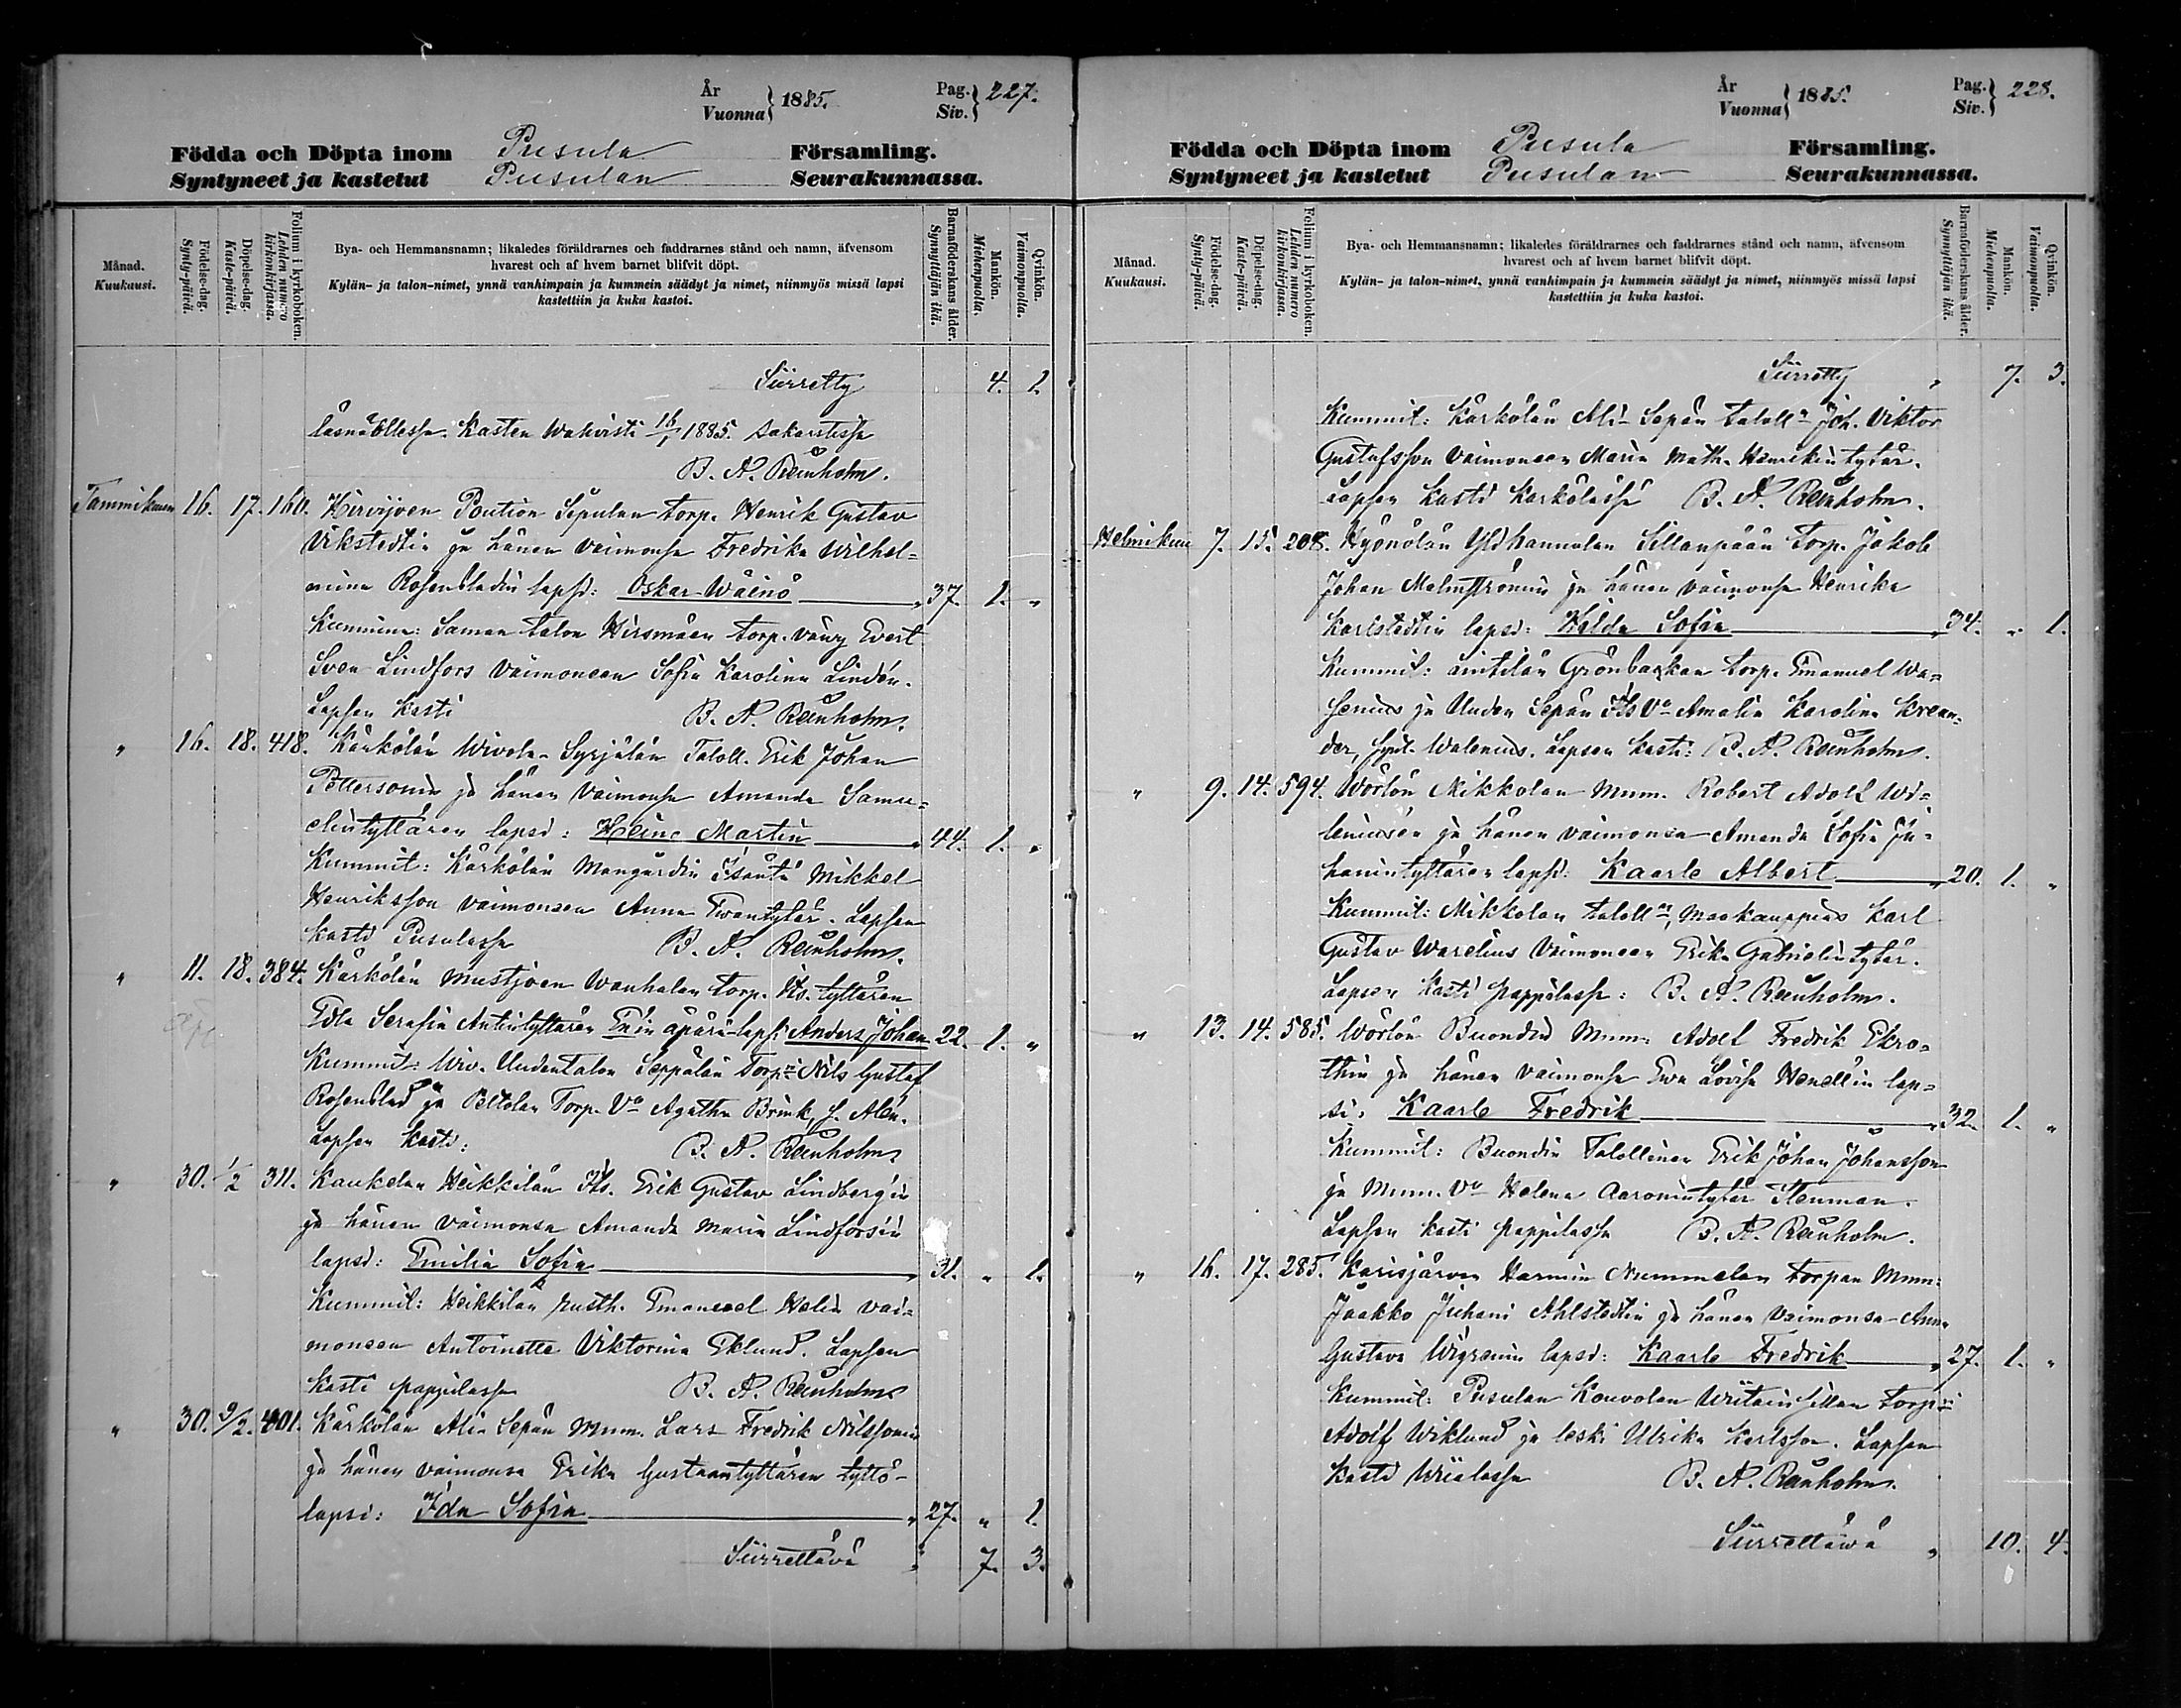 År
Vuonna } 1885.
Pag.
Siv. } 227.
Födda och Döpta inom Pusula Församling.
Syntyneet ja kastetut Pusulan Seurakunnassa.
Månad.
Kuukausi.
Födelse-dag.
Synty-päivä.
Döpelse-dag.
Kaste-päivä.
Folium i kyrkoboken.
Lehden numero kirkonkirjassa.
Bya- och Hemmansnamn; likaledes föräldrarnes och faddrarnes stånd och namn, äfvensom
hvarest och af hvem barnet blifvit döpt.
Kylän- ja talon-nimet, ynnä vanhimpain ja kummein säädyt ja nimet, niinmyös missä lapsi
kastettiin ja kuka kastoi.
Barnaföderskans ålder.
Synnyttäjän ikä.
Mankön.
Miehenpuolta.
Qvinkön.
Vaimonpuolta.
Siirretty 4. 1.
läsnäollessa. Kasteen Wahvisti 16/1 1885. Sakarstissa
B. A. Renholm.
Tammikuun 16. 17. 160. Hirvijoen Pontion Sepulan torp. Henrik Gustav
Vikstedtin ja hänen vaimonsa Fredrika Wilhel-
mina Rosenbladin lapsi: Oskar Wäinö „ 37. 1. „
Kummina: Saman talon Hirsmäen torp. vävy Evert
Sven Lindfors vaimoneen Sofia Karolina Lindén.
Lapsen kasti B. A. Renholm.
„ 16. 18. 418. Kärkölän Wivola-Syrjälän Taloll. Erik Johan
Petterssonin ja hänen vaimonsa Amanda Samu-
elintyttären lapsi: Heino Martin „ 44. 1. „
Kummit: Kärkölän Mangårdin Isäntä Mikkel
Henriksson vaimonsen Anna Evantytär. Lapsen
kasti Pusulassa B. A. Renholm.
„ 11. 18. 384. Kärkölän Mustjoen Wanhalan torp. Its. tyttären
Edla Serafia Antintyttären En:in äpärä-lapsi Anders Johan 22. 1. „
Kummit: Wiv. Uudentalon Seppälän Torp:n Nils Gustaf
Rosenblad ja Peltolan Torp. Vo Agatha Brink, f. Alén.
Lapsen kasti: B. A. Renholm.
„ 30. 1/2 311. Kaukelan Heikkilän Its. Erik Gustav Lindberg'in
ja hänen vaimonsa Amanda Maria Lindforsin
lapsi: Emilia Sofia „ 31. „ 1.
Kummit: Heikkilän rusth. Emanuel Helin vai-
monsen Antoinette Viktorina Eklund. Lapsen
kasti pappilassa B. A. Renholm
„ 30. 9/2. 401. Kärkölän Ali-Sepän Mmm. Lars Fredrik Nilssonin
ja hänen vaimonsa Erika Gustaantyttären tyttö-
lapsi: Ida Sofia „ 27. „ 1.
Siirrettävä „ 7. 3.
År
Vuonna } 1885.
Pag.
Siv. } 228.
Födda och Döpta inom Pusula Församling.
Syntyneet ja kastetut Pusulan Seurakunnassa.
Månad.
Kuukausi.
Födelse-dag.
Synty-päivä.
Döpelse-dag.
Kaste-päivä.
Folium i kyrkoboken.
Lehden numero kirkonkirjassa.
Bya- och Hemmansnamn; likaledes föräldrarnes och faddrarnes stånd och namn, äfvensom
hvarest och af hvem barnet blifvit döpt.
Kylän- ja talon-nimet, ynnä vanhimpain ja kummein säädyt ja nimet, niinmyös missä lapsi
kastettiin ja kuka kastoi.
Barnaföderskans ålder.
Synnyttäjän ikä.
Mankön.
Miehenpuolta.
Qvinkön.
Vaimonpuolta.
Siirretty „ 7. 3.
Kummit: Kärkölän Ali-Sepän taloll:n Joh. Viktor
Gustafsson vaimoneen Maria Math. Henrikintytär.
Lapsen kasti Kärkölässä B. A. Renholm.
Helmikuu 7. 15. 208. Hyönölän Ylihannulan Sillanpään torp. Jakob
Johan Malmströmin ja hänen vaimonsa Henrika
Karlstedtin lapsi: Hilda Sofia „ 34. „ 1.
Kummit: Lintilän Grönbackan torp. Emanuel Wa-
senius ja Uuden Sepän Its Vo Amalia Karolina Krean-
der, synt. Walenius. Lapsen kasti: B. A. Renholm.
„ 9. 14. 594. Wörlön Mikkolan Mmm. Robert Adolf Wi-
leniusen ja hänen vaimonsa Amanda Sofia Ju-
hanintyttären lapsi: Kaarle Albert „ 20. 1. „
Kummit: Mikkolan taloll:n, Maakauppias Karl
Gustav Warelius Vaimoneen Erika Gabrielintytär.
Lapsen kasti pappilassa: B. A. Renholm.
„ 13. 14. 585. Wörlön Buondin Mmm. Adolf Fredrik Ekro-
thin ja hänen vaimonsa Ewa Lovisa Henellin lap-
si: Kaarle Fredrik „ 32. 1. „
Kummit: Buondin Talollinen Erik Johan Johansson
ja Mmm. Vo Helena Aaronintytär Stenman.
Lapsen kasti pappilassa B. A. Renholm.
„ 16. 17. 285. Karisjärven Harmin Nummelan torpan Mmm:
Jaakko Juhani Ahlstedtin ja hänen vaimonsa Anna
Gustava Wigrenin lapsi: Kaarle Fredrik „ 27. 1. „
Kummit: Pusulan Kouvolan Wiitainsillan torp:ri
Adolf Wiklund ja leski Ulrika Karlsson. Lapsen
kasti Wiialassa B. A. Renholm.
Siirrettäwä „ 10. 4.